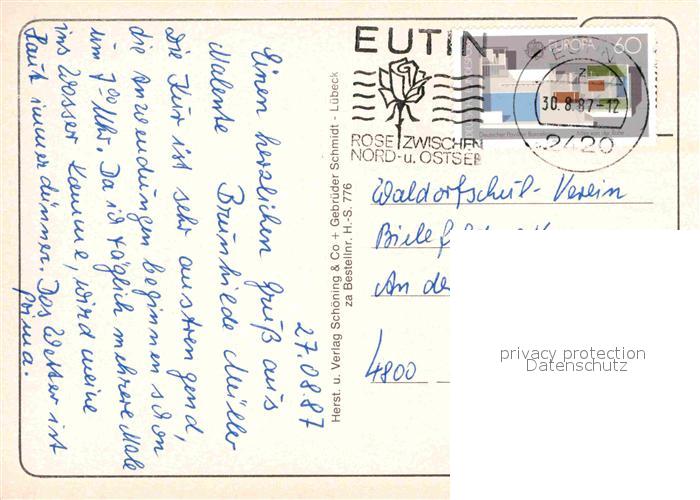 27.08.87
Einen herzlichen Gruß aus
Malente Brunhilde Müller
Die Kur ist sehr anstrengend,
die Anwendungen beginnen schon
um 7⁰⁰ Uhr. Da ich täglich mehrere Male
ins Wasser komme, wird meine
Haut immer dünner. Das Wetter ist
prima.
Herst. u. Verlag Schöning & Co + Gebrüder Schmidt - Lübeck
za Bestellnr. H.-S. 776
EUTIN
ROSE ZWISCHEN
NORD- u. OSTSEE
EUROPA 60
Deutscher Pavillon Barcelona
EUTIN
z
30.8.87-12
2420
Waldorfschul-Verein
An de
4800
privacy protection
Datenschutz